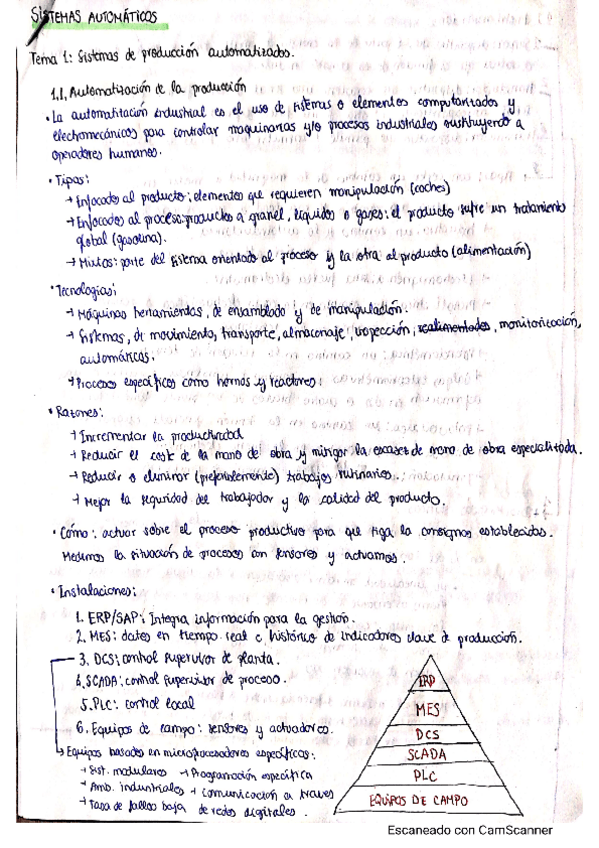 SISTEMAS AUTOMÁTICOS
Tema 1: Sistemas de producción automatizados.
1.1. Automatización de la producción
· La automatización industrial es el uso de sistemas o elementos computarizados y
electromecánicos para controlar maquinarias y/o procesos industriales sustituyendo a
operadores humanos.
· Tipos:
→ Enfocados al producto: elementos que requieren manipulación (coches)
→ Enfocados al proceso: productos a granel, líquidos o gases: el producto sufre un tratamiento
global (gasolina).
→ Mixtos: parte del sistema orientado al proceso y la otra al producto (alimentación)
· Tecnologías:
→ Máquinas herramientas, de ensamblado y de manipulación.
→ Sistemas, de movimiento, transporte, almacenaje, inspección, realimentados, monitorización,
automáticas.
→ Procesos específicos como hornos y reactores.
· Razones:
→ Incrementar la productividad
→ Reducir el coste de la mano de obra y mitigar la escasez de mano de obra especializada.
→ Reducir o eliminar (preferiblemente) trabajos rutinarios.
→ Mejor la seguridad del trabajador y la calidad del producto.
· Cómo: actuar sobre el proceso productivo para que siga la consignas establecidas.
Medimos la situación de procesos con sensores y actuamos.
· Instalaciones:
1. ERP/SAP: Integra información para la gestión.
2. MES: datos en tiempo real e histórico de indicadores clave de producción.
3. DCS: control supervisor de planta.
4. SCADA: control supervisor de proceso.
5. PLC: control local
6. Equipos de campo: sensores y actuadores.
↳ Equipos basados en microprocesadores específicos:
→ Sist. modulares → Programación específica
→ Amb. industriales → Comunicación a través
→ Tasa de fallos baja de redes digitales.
ERP
MES
DCS
SCADA
PLC
EQUIPOS DE CAMPO
Escaneado con CamScanner